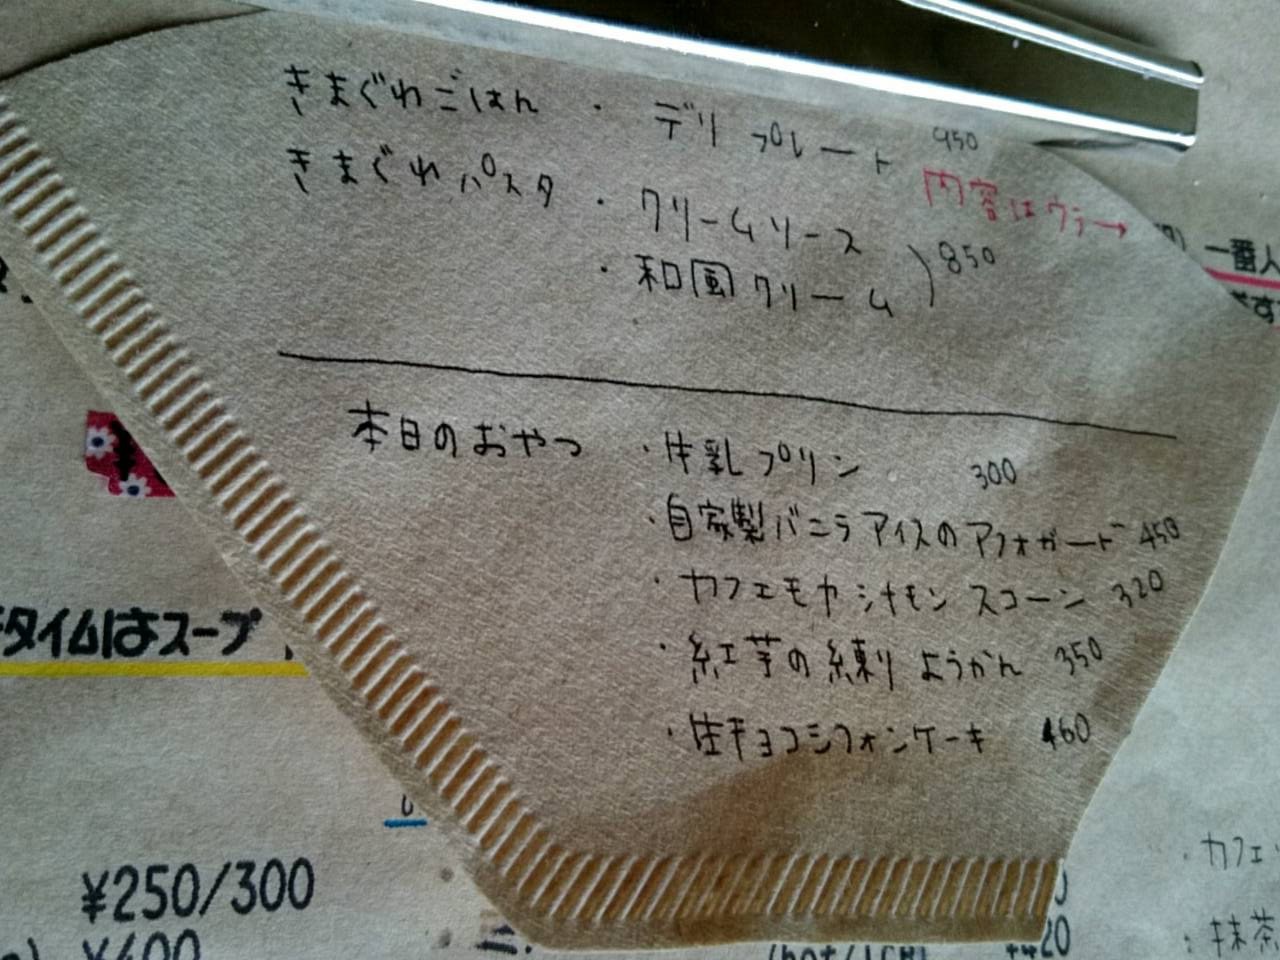 きまぐれごはん ・ デリプレート 950
内容はウラ→
きまぐれパスタ ・ クリームソース
・ 和風クリーム ) 850
本日のおやつ ・牛乳プリン 300
・自家製バニラアイスのアフォガード 450
・カフェモカシナモンスコーン 320
・紅芋の練りようかん 350
・生チョコシフォンケーキ 460
一番人
タイムはスープ
¥250/300
¥400
20
・カフェ
:抹茶